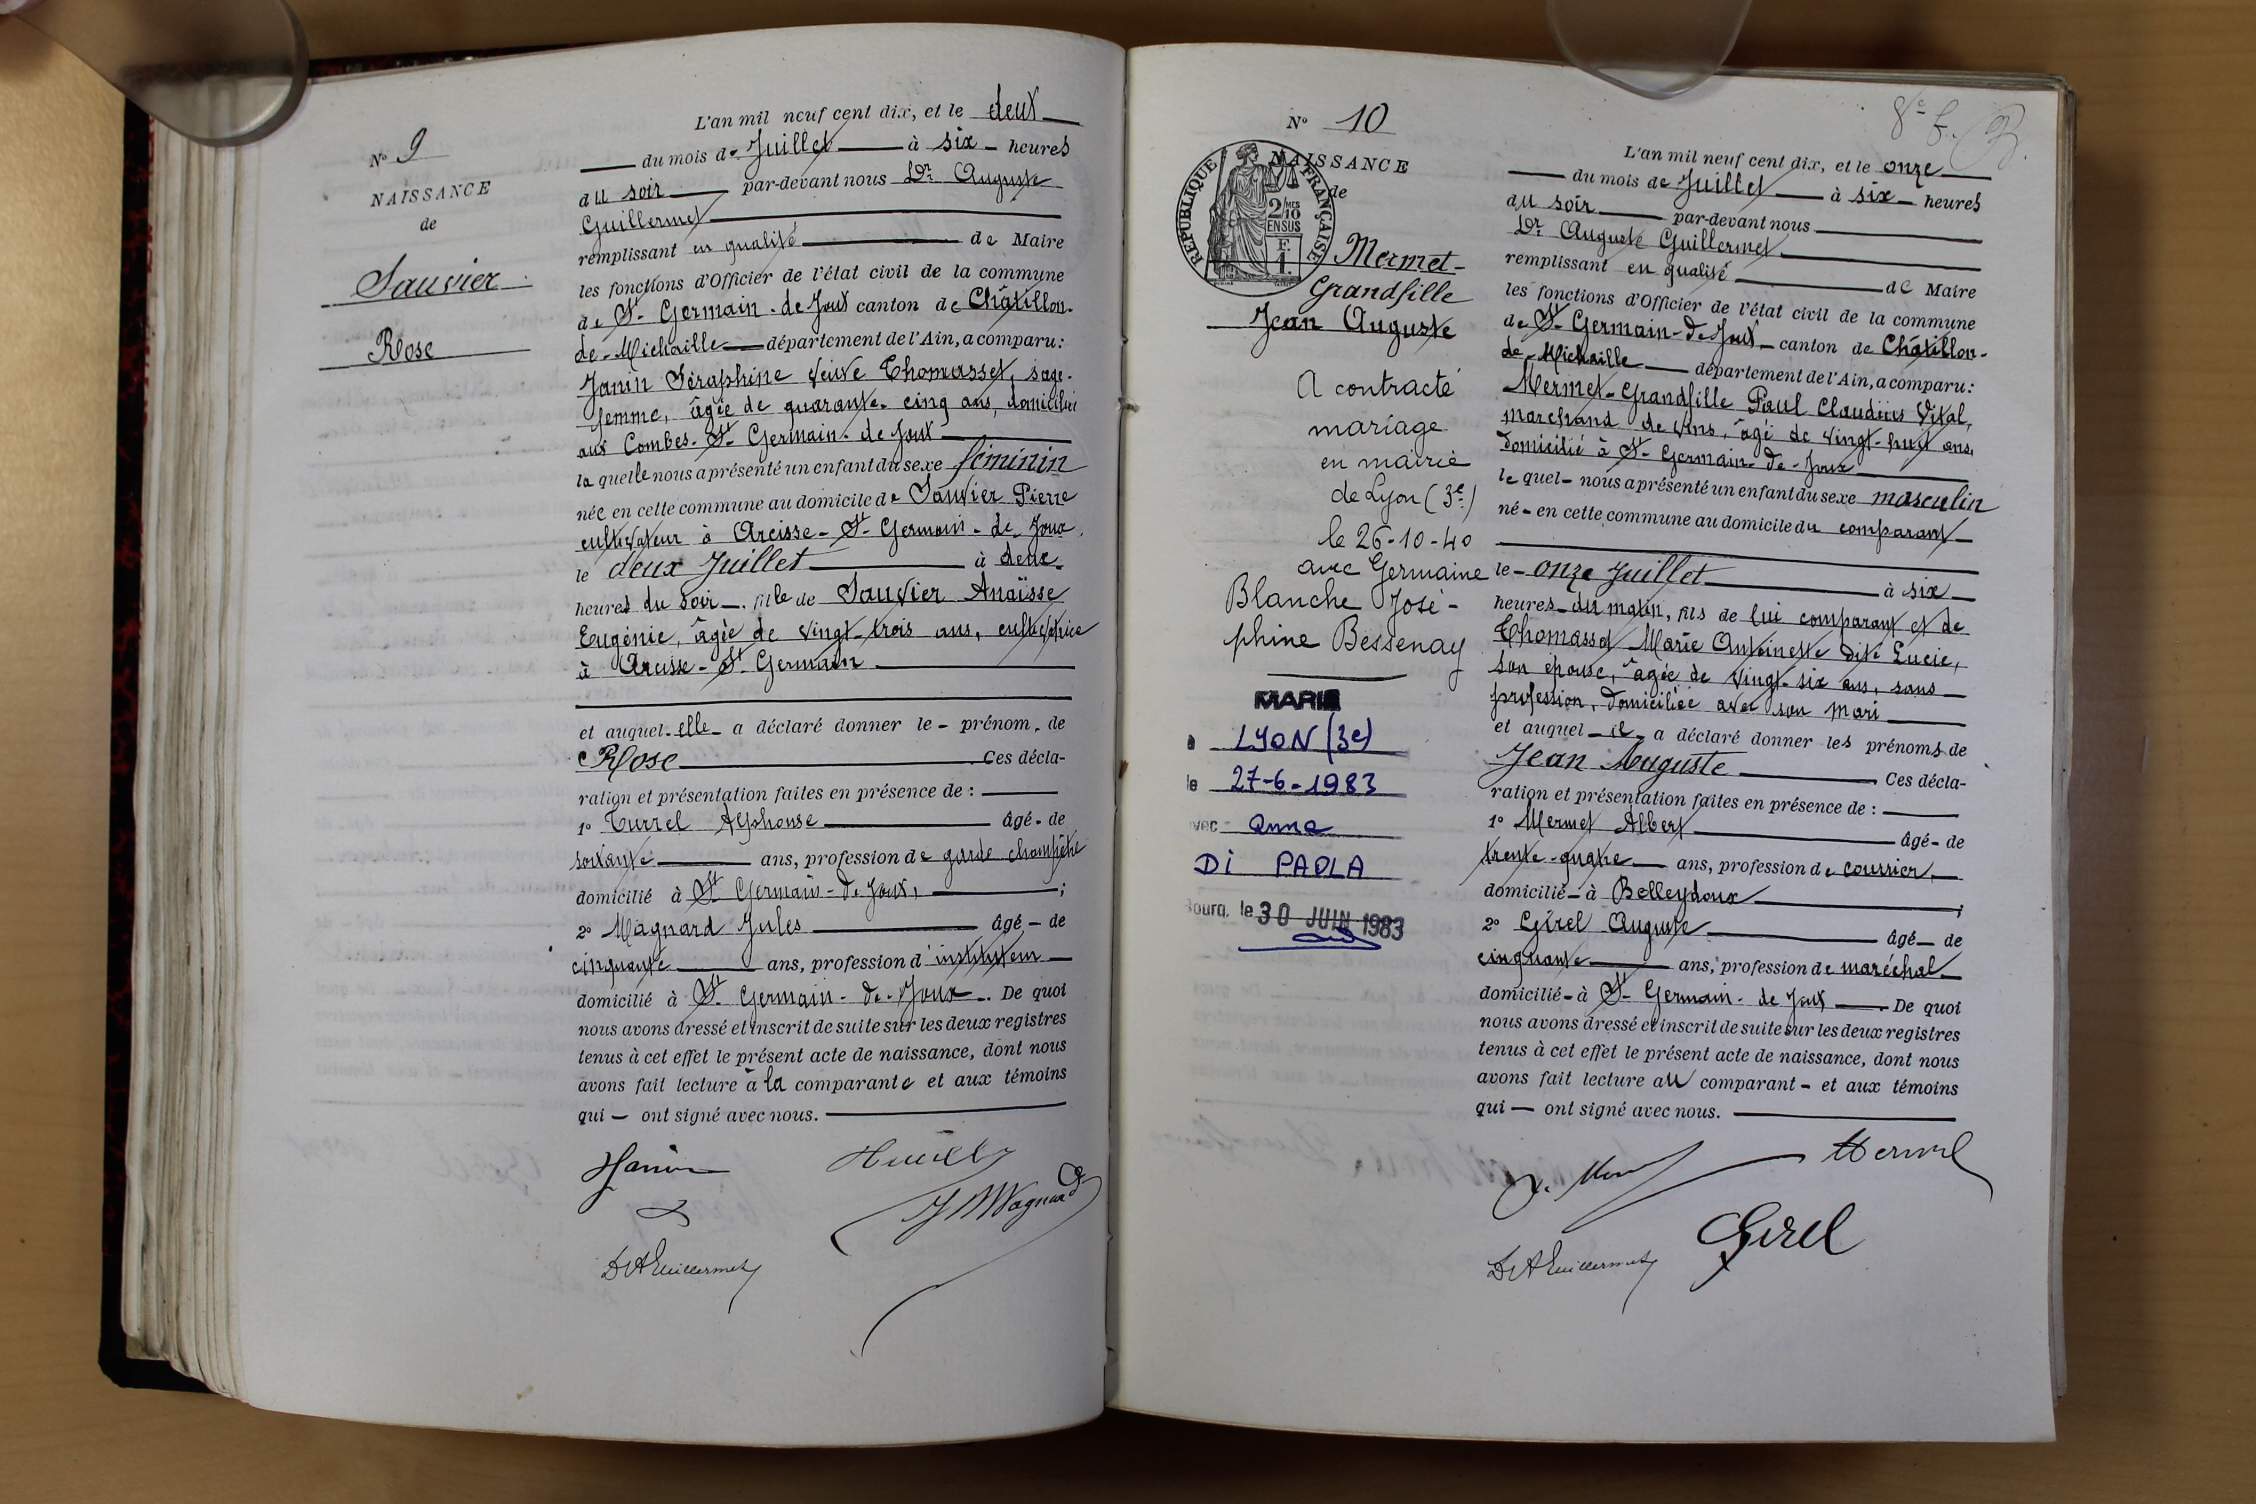 N° 9
NAISSANCE
de
Sauvier
Rose
L'an mil neuf cent dix, et le deux
du mois de Juillet à six heures
du soir par-devant nous Dr. Auguste
Guillermet
remplissant en qualité de Maire
les fonctions d'Officier de l'état civil de la commune
de St. Germain-de-Joux canton de Châtillon-
de-Michaille département de l'Ain, a comparu:
Janin Séraphine veuve Thomasset, sage-
femme, âgée de quarante-cinq ans, domiciliée
aux Combes-St. Germain-de-Joux
la quelle nous a présenté un enfant du sexe féminin
née en cette commune au domicile de Sauvier Pierre
cultivateur à Arcisse-St. Germain-de-Joux,
le deux Juillet à deux
heures du soir, fille de Sauvier Anaïsse
Eugénie, âgée de vingt-trois ans, cultivatrice
à Arcisse-St. Germain
et auquel elle a déclaré donner le prénom de
Rose Ces décla-
ration et présentation faites en présence de :
1° Turrel Alphonse âgé de
soixante ans, profession de garde champêtre
domicilié à St. Germain-de-Joux, ;
2° Magnard Jules âgé de
cinquante ans, profession d'instituteur
domicilié à St. Germain-de-Joux. De quoi
nous avons dressé et inscrit de suite sur les deux registres
tenus à cet effet le présent acte de naissance, dont nous
avons fait lecture à la comparante et aux témoins
qui ont signé avec nous.
Janin
J Magnard
Dr A Guillermet
N° 10
NAISSANCE
de
RÉPUBLIQUE FRANÇAISE
2/10
MES
EN SUS
F.
1.
Mermet-
Grandfille
Jean Auguste
A contracté
mariage
en mairie
de Lyon (3e)
le 26-10-40
avec Germaine
Blanche José-
phine Bessenay
MARIÉ
à LYON (3e)
le 27-6-1983
avec Anna
Di PAOLA
Bourg, le 30 JUIN 1983
L'an mil neuf cent dix, et le onze
du mois de Juillet à six heures
du soir par-devant nous
Dr. Auguste Guillermet
remplissant en qualité de Maire
les fonctions d'Officier de l'état civil de la commune
de St. Germain-de-Joux canton de Châtillon-
de-Michaille département de l'Ain, a comparu:
Mermet-Grandfille Paul Claudius Vital,
marchand de vins, âgé de vingt-huit ans,
domicilié à St. Germain-de-Joux
le quel nous a présenté un enfant du sexe masculin
né en cette commune au domicile du comparant
le onze Juillet à six
heures du matin, fils de lui comparant et de
Thomasset Marie Antoinette dite Lucie,
son épouse, âgée de vingt-six ans, sans
profession, domiciliée avec son mari
et auquel il a déclaré donner les prénoms de
Jean Auguste Ces décla-
ration et présentation faites en présence de :
1° Mermet Albert âgé de
trente-quatre ans, profession de courrier,
domicilié à Belleydoux ;
2° Girel Auguste âgé de
cinquante ans, profession de maréchal
domicilié à St. Germain-de-Joux De quoi
nous avons dressé et inscrit de suite sur les deux registres
tenus à cet effet le présent acte de naissance, dont nous
avons fait lecture au comparant et aux témoins
qui ont signé avec nous.
Mermet
Girel
Dr A Guillermet